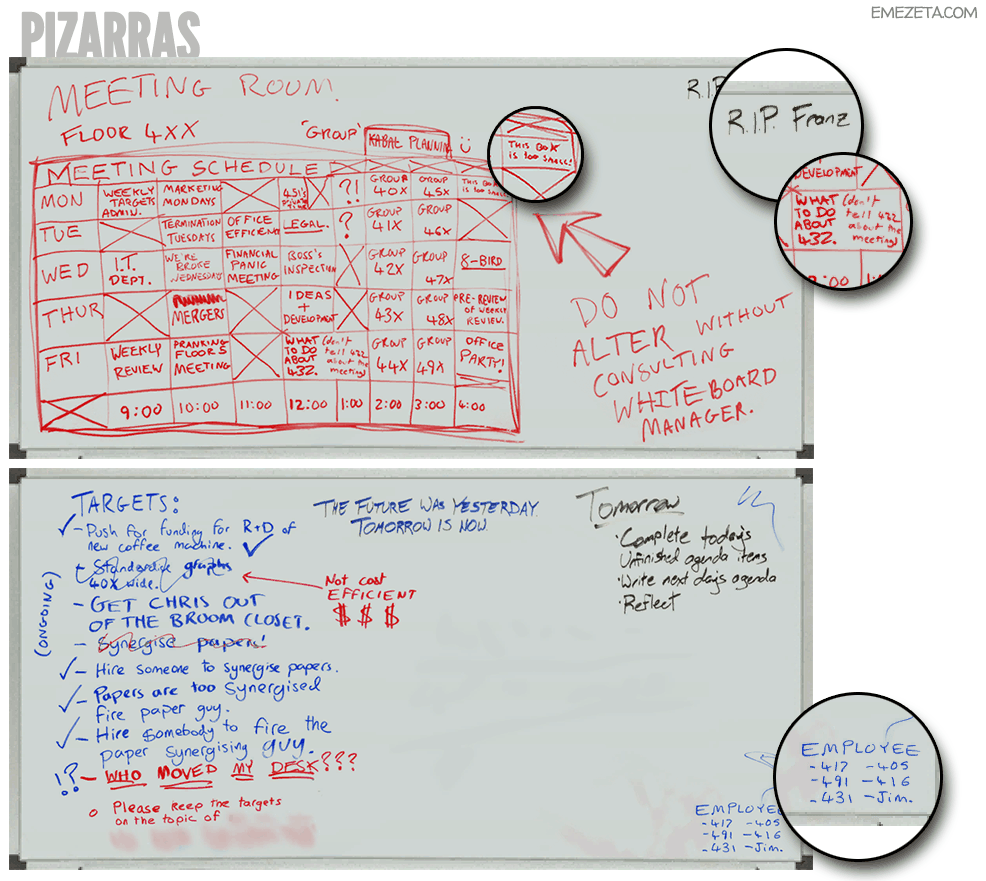 PIZARRAS
EMEZETA.COM
MEETING ROOM.
FLOOR 4XX
'GROUP'
KABAL PLANNIN
R.I.P
R.I.P. Franz
THIS BOX
IS TOO SMALL!
DEVELOPMENT
WHAT (don't
TO DO tell 432
ABOUT about the
432. meeting)
MEETING SCHEDULE
MON WEEKLY TARGETS ADMIN. MARKETING MONDAYS ?! GROUP 40X GROUP 45X THIS BOX IS TOO SMALL!
TUE TERMINATION TUESDAYS OFFICE EFFICENC LEGAL. ? GROUP 41X GROUP 46X
WED I.T. DEPT. WE'RE BROKE WEDNESDAYS FINANCIAL PANIC MEETING BOSS'S INSPECTION GROUP 42X GROUP 47X 8-BIRD
THUR MERGERS IDEAS + DEVELOPMENT GROUP 43X GROUP 48X PRE-REVIEW OF WEEKLY REVIEW.
FRI WEEKLY REVIEW PRANKING FLOOR 5 MEETING WHAT TO DO ABOUT 432. (don't tell 432 about the meeting) GROUP 44X GROUP 49X OFFICE PARTY!
9:00 10:00 11:00 12:00 1:00 2:00 3:00 4:00
DO NOT
ALTER WITHOUT
CONSULTING
WHITEBOARD
MANAGER.
TARGETS:
- Push for funding for R+D of
new coffee machine.
- Standardise graphs
40X wide.
(ONGOING)
- GET CHRIS OUT
OF THE BROOM CLOSET.
- Synergise papers!
- Hire someone to synergise papers.
- Papers are too synergised
fire paper guy.
- Hire somebody to fire the
paper synergising guy.
!? - WHO MOVED MY DESK???
o Please keep the targets
on the topic of
NOT COST
EFFICIENT
$ $ $
THE FUTURE WAS YESTERDAY.
TOMORROW IS NOW.
Tomorrow
·Complete today's
Unfinished agenda items
·Write next day's agenda
·Reflect
EMPLOYEE
-417 -405
-491 -416
-431 -Jim.
EMPLOYEE
-417 -405
-491 -416
-431 -Jim.